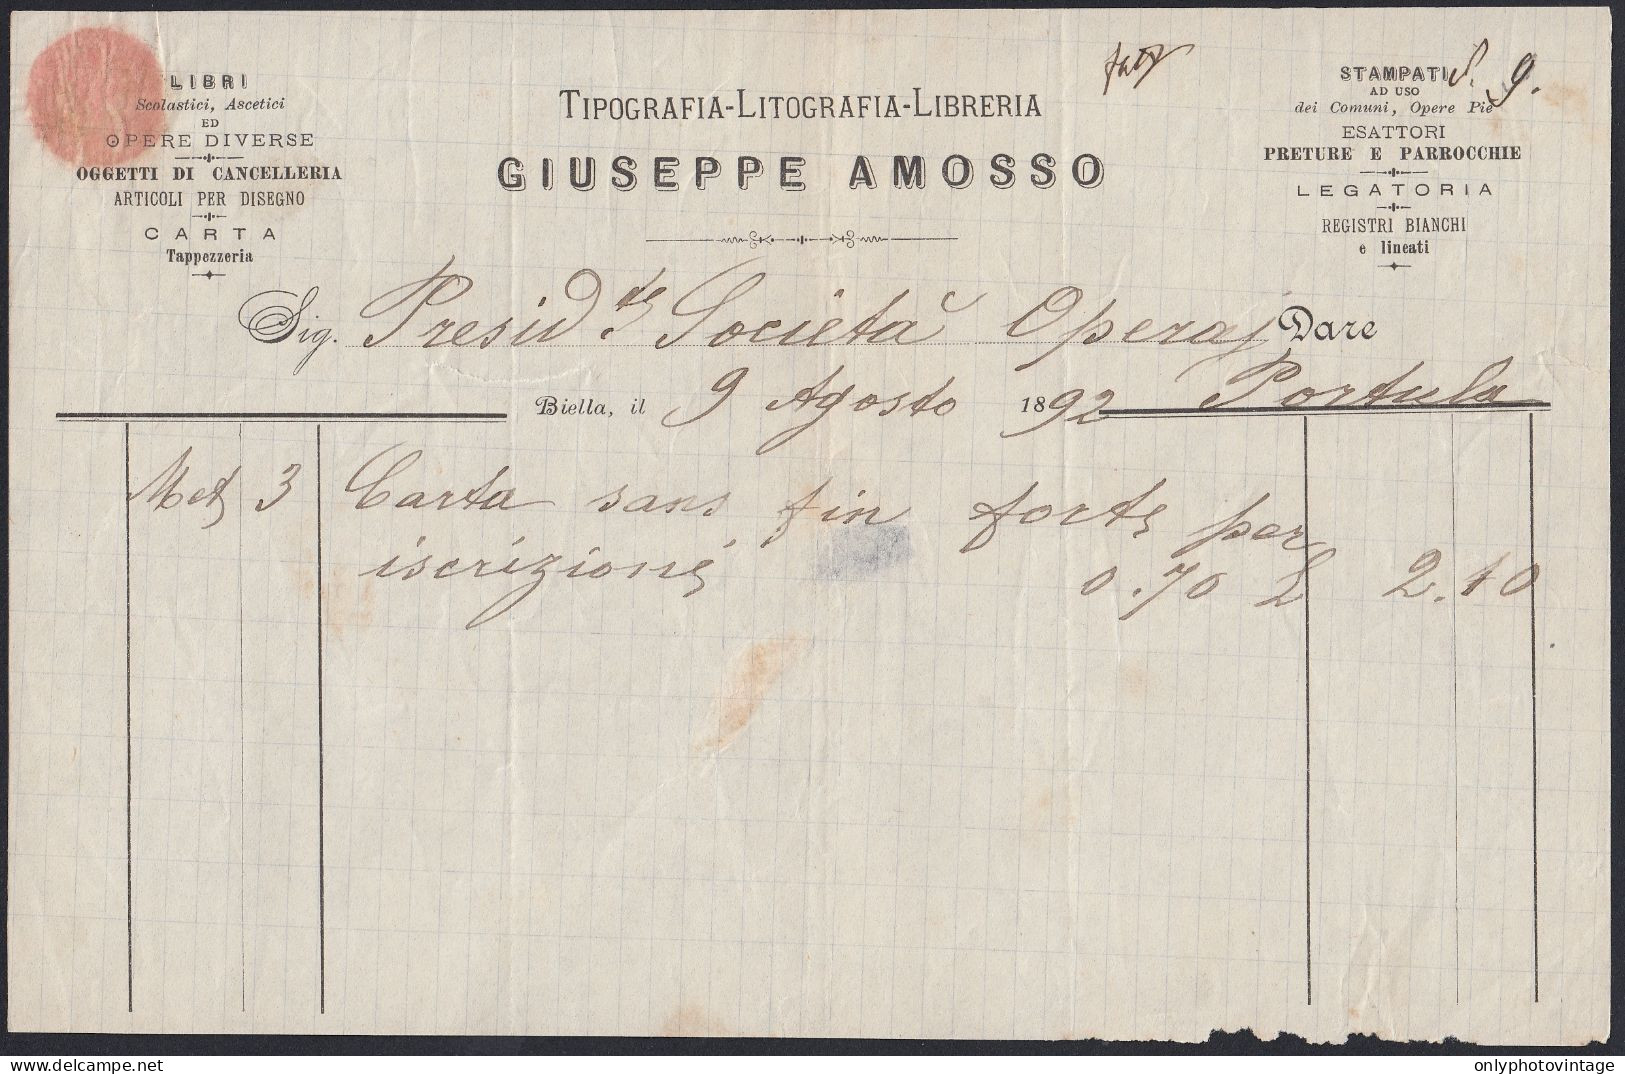 LIBRI
Scolastici, Ascetici
ED
OPERE DIVERSE
OGGETTI DI CANCELLERIA
ARTICOLI PER DISEGNO
CARTA
Tappezzeria
TIPOGRAFIA-LITOGRAFIA-LIBRERIA
GIUSEPPE AMOSSO
9.
STAMPATI
AD USO
dei Comuni, Opere Pie
ESATTORI
PRETURE E PARROCCHIE
LEGATORIA
REGISTRI BIANCHI
e lineati
Sig. Presid.te Società Operaj Dare
Biella, il 9 Agosto 1892 Portula
Met 3 Carta sans fin forte per
iscrizioni 0.70 L 2.10
onlyphotovintage
delcampe.net